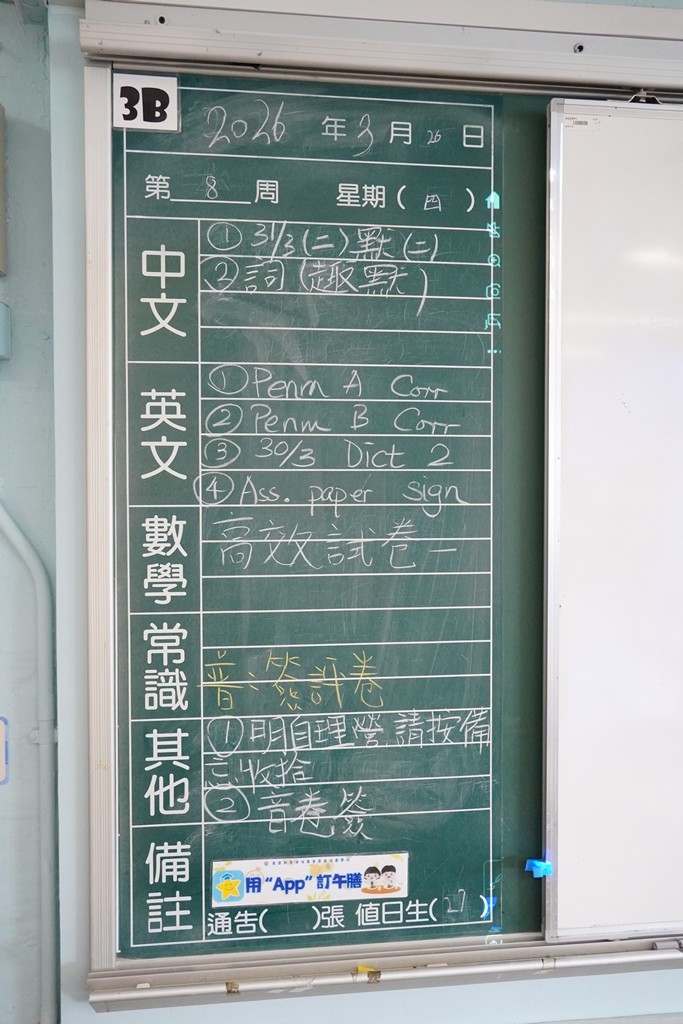 3B
2026 年 3 月 26 日
第 8 周 星期( 四 )
中文
① 31/3(二)默(二)
② 詞(趣默)
英文
① Penm A Corr
② Penm B Corr
③ 30/3 Dict 2
④ Ass. paper sign
數學
高效試卷一
常識
普:簽評卷
其他
① 明自理營,請按備
忘收拾
② 音卷簽
備註
用“App”訂午膳
通告( )張 值日生( 27 )